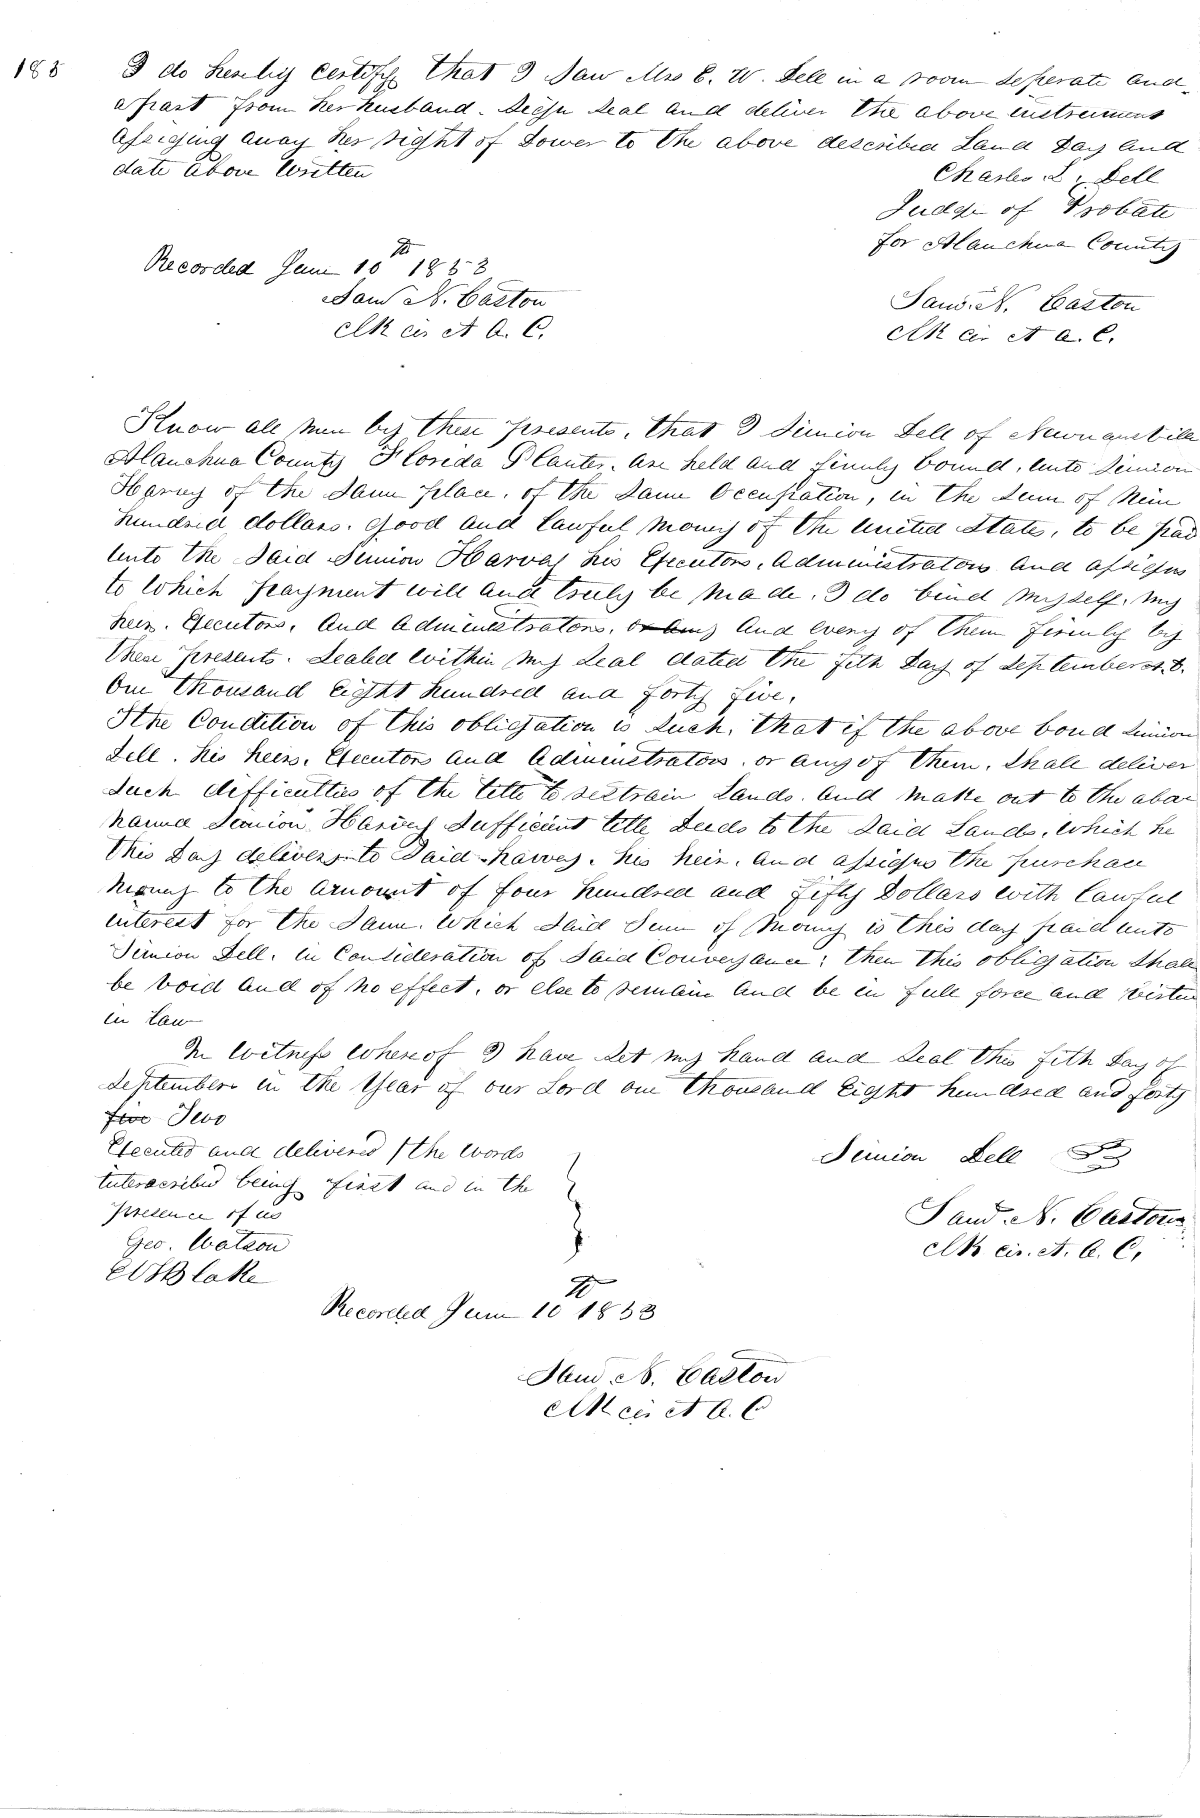 185
I do hereby Certify that I Saw Mrs E. W. Dell in a room Seperate and
apart from her husband. Sign Seal and deliver the above instrument
Assigning away her right of Dower to the above described Land Day and
date above Written
Charles L. Dell
Judge of Probate
for Alanchua County
Recorded June 10th 1853
Saml N. Caston
Clk cir Ct A. C.
Saml. N. Caston
Clk Cir Ct A. C.
Know all Men by these presents, that I Simion Dell of Newnansville
Alanchua County Florida Planter. are held and firmly bound, unto Simion
Harvey of the Same place, of the Same Occupation, in the Sum of Nine
hundred dollars. good and lawful Money of the United States, to be paid
Unto the Said Simion Harvey his Executors, Administrators and assigns
to Which payment will and truly be Made. I do bind Myself, My
heirs. Executors, And Administrators, or any And every of them firmly by
these presents. Sealed Within My Seal dated the fith Day of September A.D.
One thousand Eight hundred and forty five.
The Condition of this obligation is Such, that if the above bond Simion
Dell. his heirs, Executors and Administrators. or any of them. Shall deliver
Such difficulties of the title to certain Lands. And Make out to the above
named Simion Harvey Sufficient title Deeds to the Said Lands, Which he
this Day delivers to Said Harvey. his heirs. And assigns the purchase
Money to the Amount of four hundred and fifty Dollars with lawful
interest for the Same. Which Said Sum of Money is this day paid unto
Simion Dell. in Consideration of Said Conveyance; then this obligation Shall
be void and of no effect, or else to remain and be in full force and virtue
in Law
In Witness Whereof I have Set my hand and Seal this fith Day of
September in the Year of our Lord one thousand Eight hundred and forty
five Two
Executed and delivered / the Words
interscribed being first and in the
presence of us
Geo. Watson
Simion Dell
Saml. N. Caston
Clk cir. Ct. A. C.
Blake
Recorded June 10th 1853
Saml. N. Caston
Clk cir Ct A. C